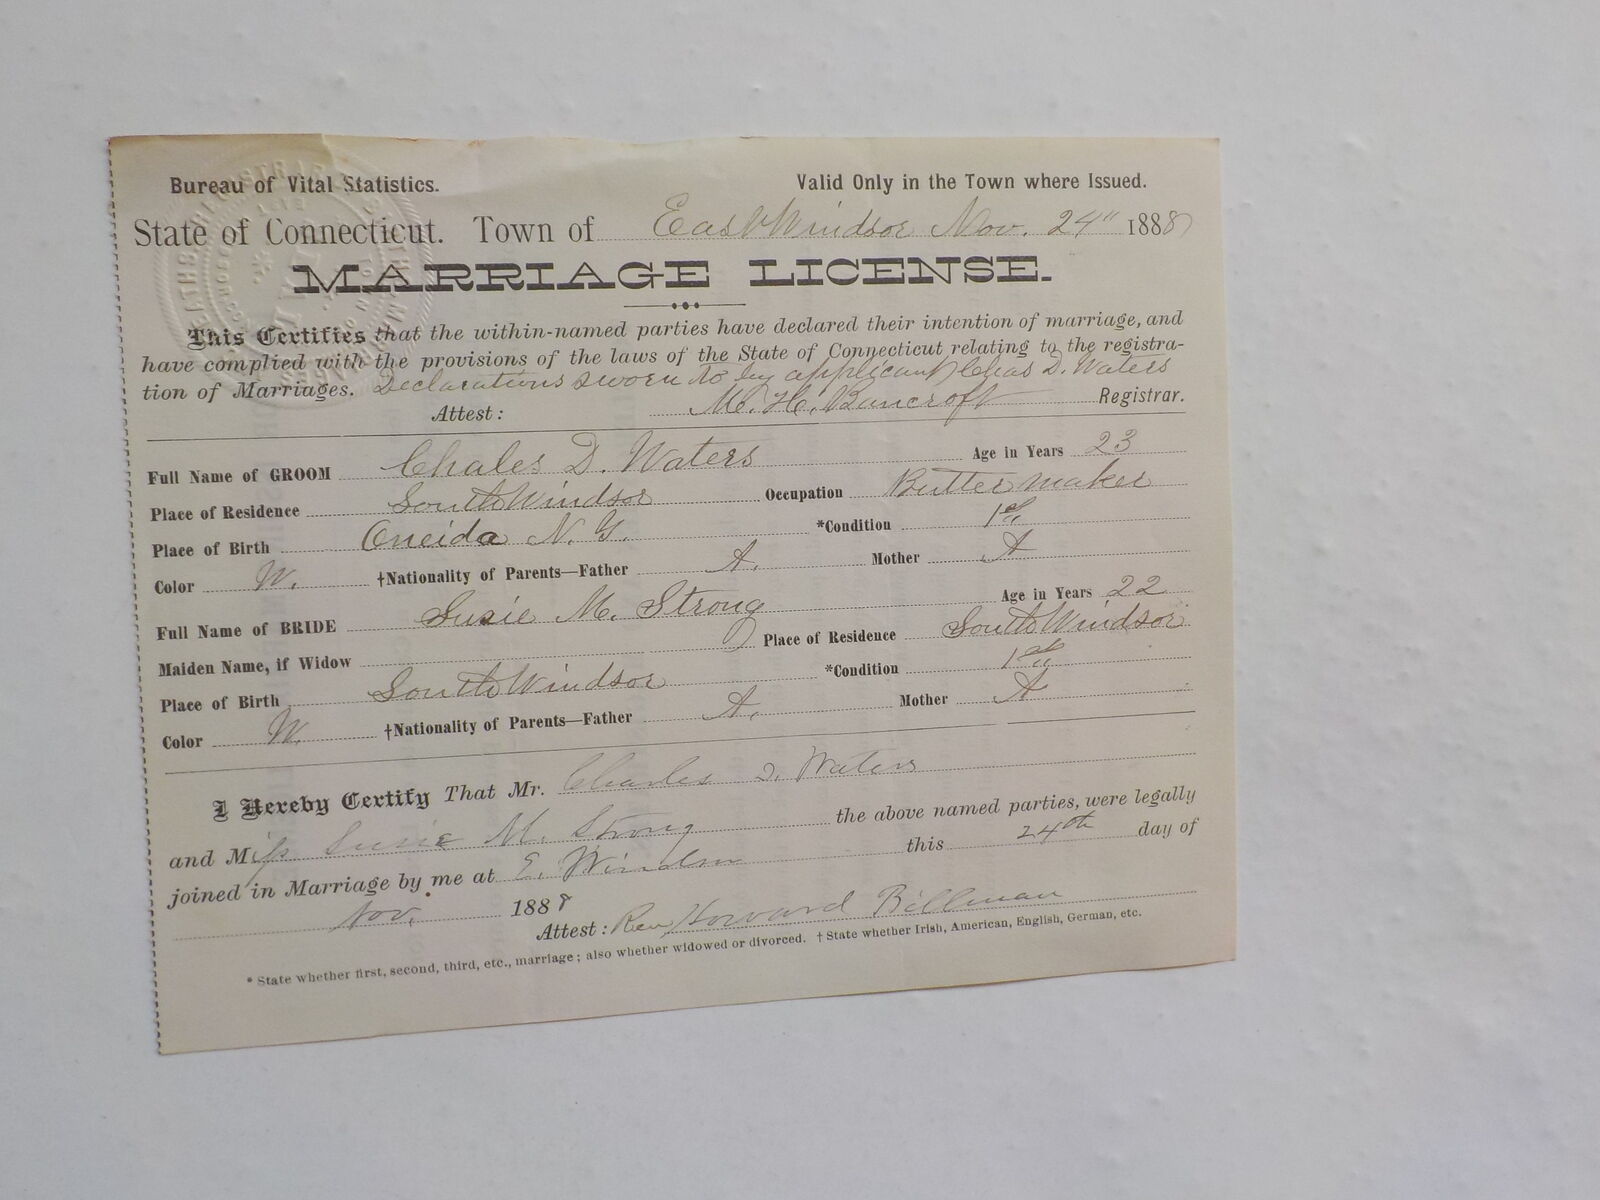 Bureau of Vital Statistics. Valid Only in the Town where Issued.
State of Connecticut. Town of East Windsor Nov. 24" 1888
MARRIAGE LICENSE.
This Certifies that the within-named parties have declared their intention of marriage, and
have complied with the provisions of the laws of the State of Connecticut relating to the registra-
tion of Marriages. Declarations sworn to by applicant Chas D. Waters
Attest: M. H. Bancroft Registrar.
Full Name of GROOM Chales D. Waters Age in Years 23
Place of Residence South Windsor Occupation Butter maker
Place of Birth Oneida N. Y. *Condition 1st
Color W. †Nationality of Parents—Father A. Mother A
Full Name of BRIDE Susie M. Strong Age in Years 22
Maiden Name, if Widow Place of Residence South Windsor
Place of Birth South Windsor *Condition 1st
Color W. †Nationality of Parents—Father A. Mother A
I Hereby Certify That Mr. Charles D. Waters
and Miss Susie M. Strong the above named parties, were legally
joined in Marriage by me at E. Windsor this 24th day of
Nov. 1888 Attest: Rev Howard Billman
* State whether first, second, third, etc., marriage; also whether widowed or divorced. † State whether Irish, American, English, German, etc.